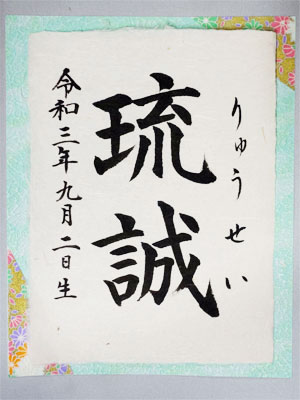 りゅうせい
琉誠
令和三年九月二日生